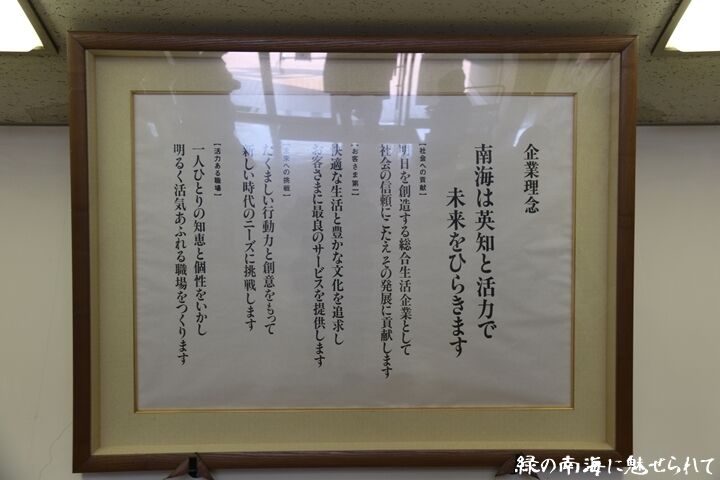 企業理念
南海は英知と活力で
未来をひらきます
【社会への貢献】
明日を創造する総合生活企業として
社会の信頼にこたえその発展に貢献します
【お客さま第一】
快適な生活と豊かな文化を追求し
お客さまに最良のサービスを提供します
【未来への挑戦】
たくましい行動力と創意をもって
新しい時代のニーズに挑戦します
【活力ある職場】
一人ひとりの知恵と個性をいかし
明るく活気あふれる職場をつくります
緑の南海に魅せられて